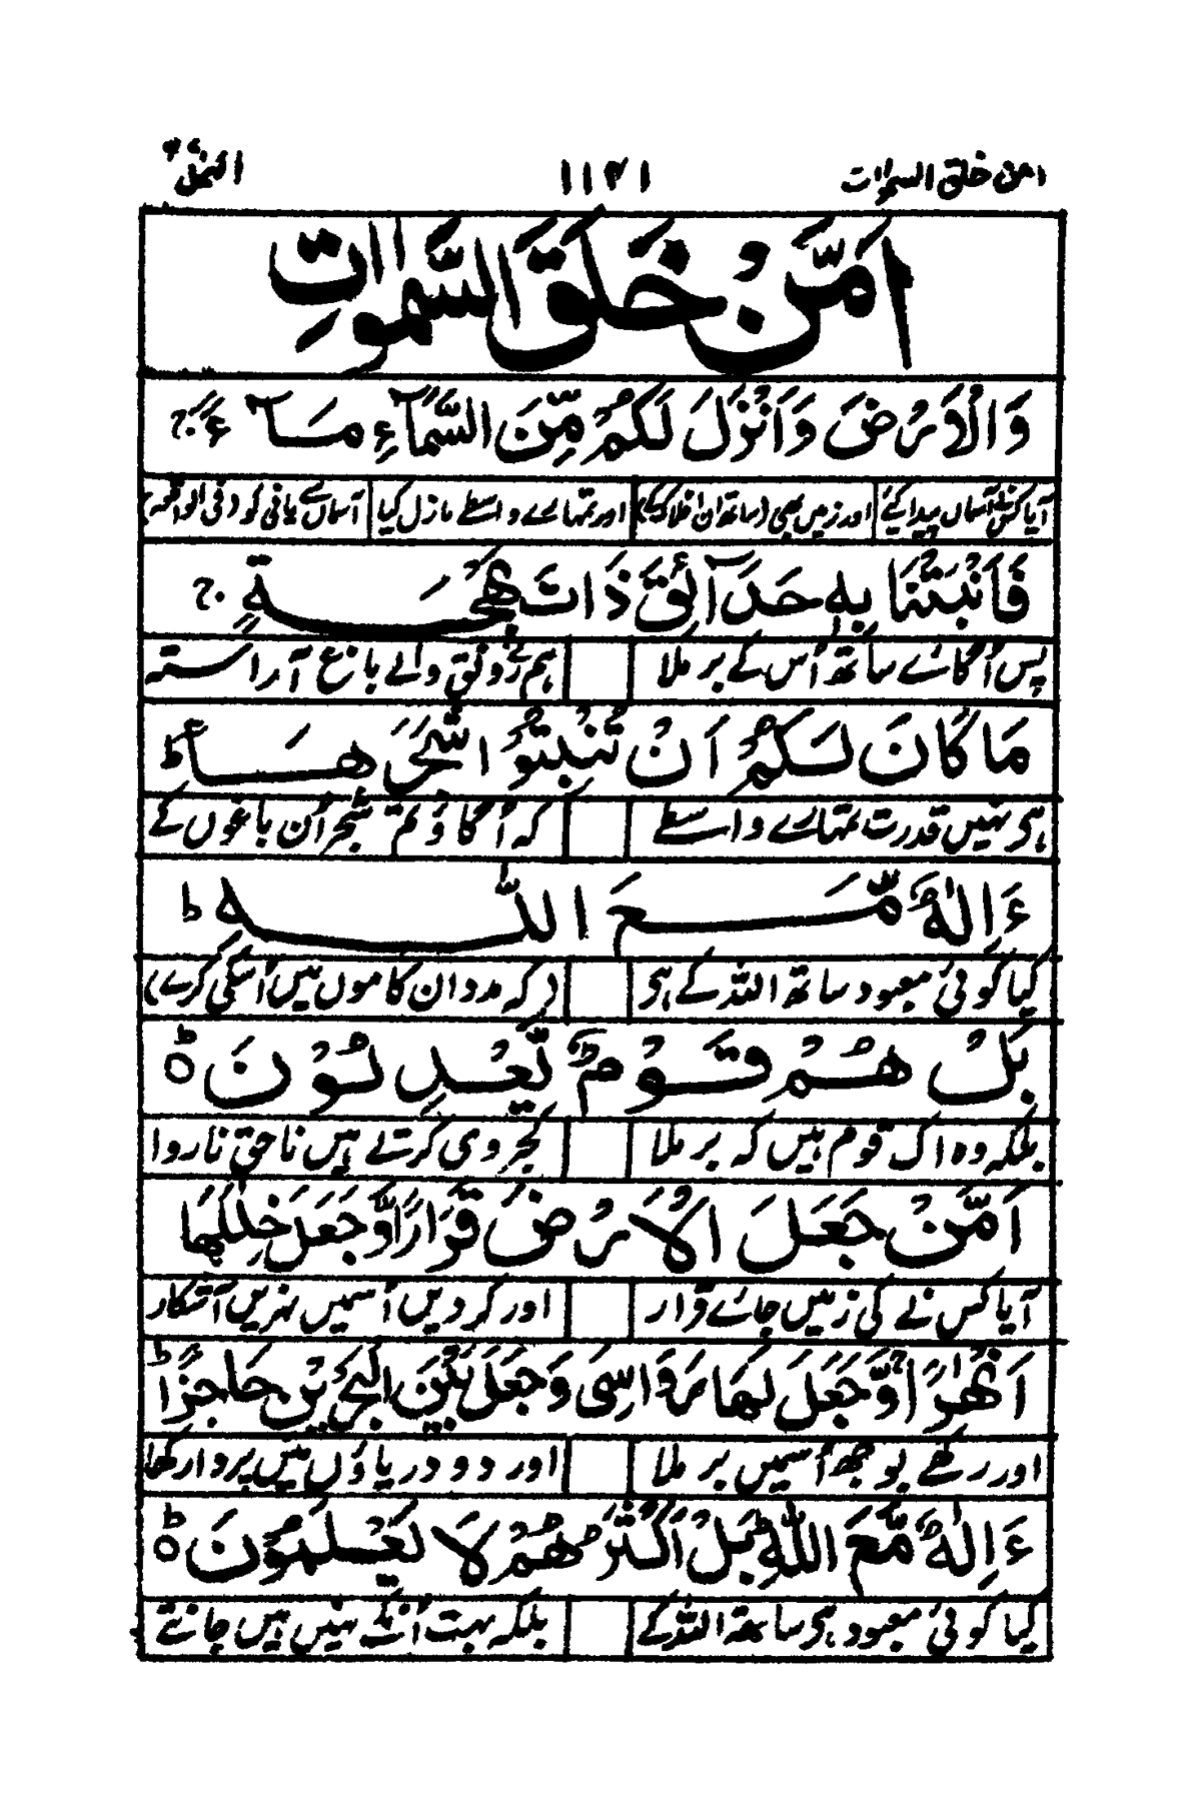 امن خلق السموات ۱۱۴۱ النمل
اَمَّنْ خَلَقَ السَّمٰوٰتِ
وَالْاَرْضَ وَاَنْزَلَ لَكُمْ مِّنَ السَّمَآءِ مَآءً ج
آیا کسنے آسماں پیدا کیے اور زمیں بھی (ساتھ ان افلاک کے) اور تمہارے واسطے نازل کیا آسماں سے پانی کو (فی الواقعہ)
فَاَنْۢبَتْنَا بِهٖ حَدَآئِقَ ذَاتَ بَهْجَةٍ ج
پس اُگائے ساتھ اُس کے بر ملا ہم نے رونق والے باغ آراستہ
مَا كَانَ لَكُمْ اَنْ تُنْۢبِتُوْا شَجَرَهَا ط
ہی نہیں قدرت تمہارے واسطے کہ اُگاؤ تم شجر اُن باغوں کے
ءَاِلٰهٌ مَّعَ اللّٰهِ ط
کیا کوئی معبود ساتھ اللہ کے ہی (کہ مدد ان کاموں میں اُسکی کرے)
بَلْ هُمْ قَوْمٌ يَّعْدِلُوْنَ ط
بلکہ وہ اک قوم ہیں کہ بر ملا کجروی کرتے ہیں ناحق ناروا
اَمَّنْ جَعَلَ الْاَرْضَ قَرَارًا وَّجَعَلَ خِلٰلَهَا
آیا کس نے کی زمیں جائے قرار اور کر دیں اُسمیں نہریں آشکار
اَنْهٰرًا وَّجَعَلَ لَهَا رَوَاسِىَ وَجَعَلَ بَيْنَ الْبَحْرَيْنِ حَاجِزًا ط
اور رکھے بوجھ اُسمیں بر ملا اور دو دریاؤں میں پردا رکھا
ءَاِلٰهٌ مَّعَ اللّٰهِ ط بَلْ اَكْثَرُهُمْ لَا يَعْلَمُوْنَ ط
کیا کوئی معبود ہی ساتھ اللہ کے بلکہ بہت اُنکے نہیں ہیں جانتے